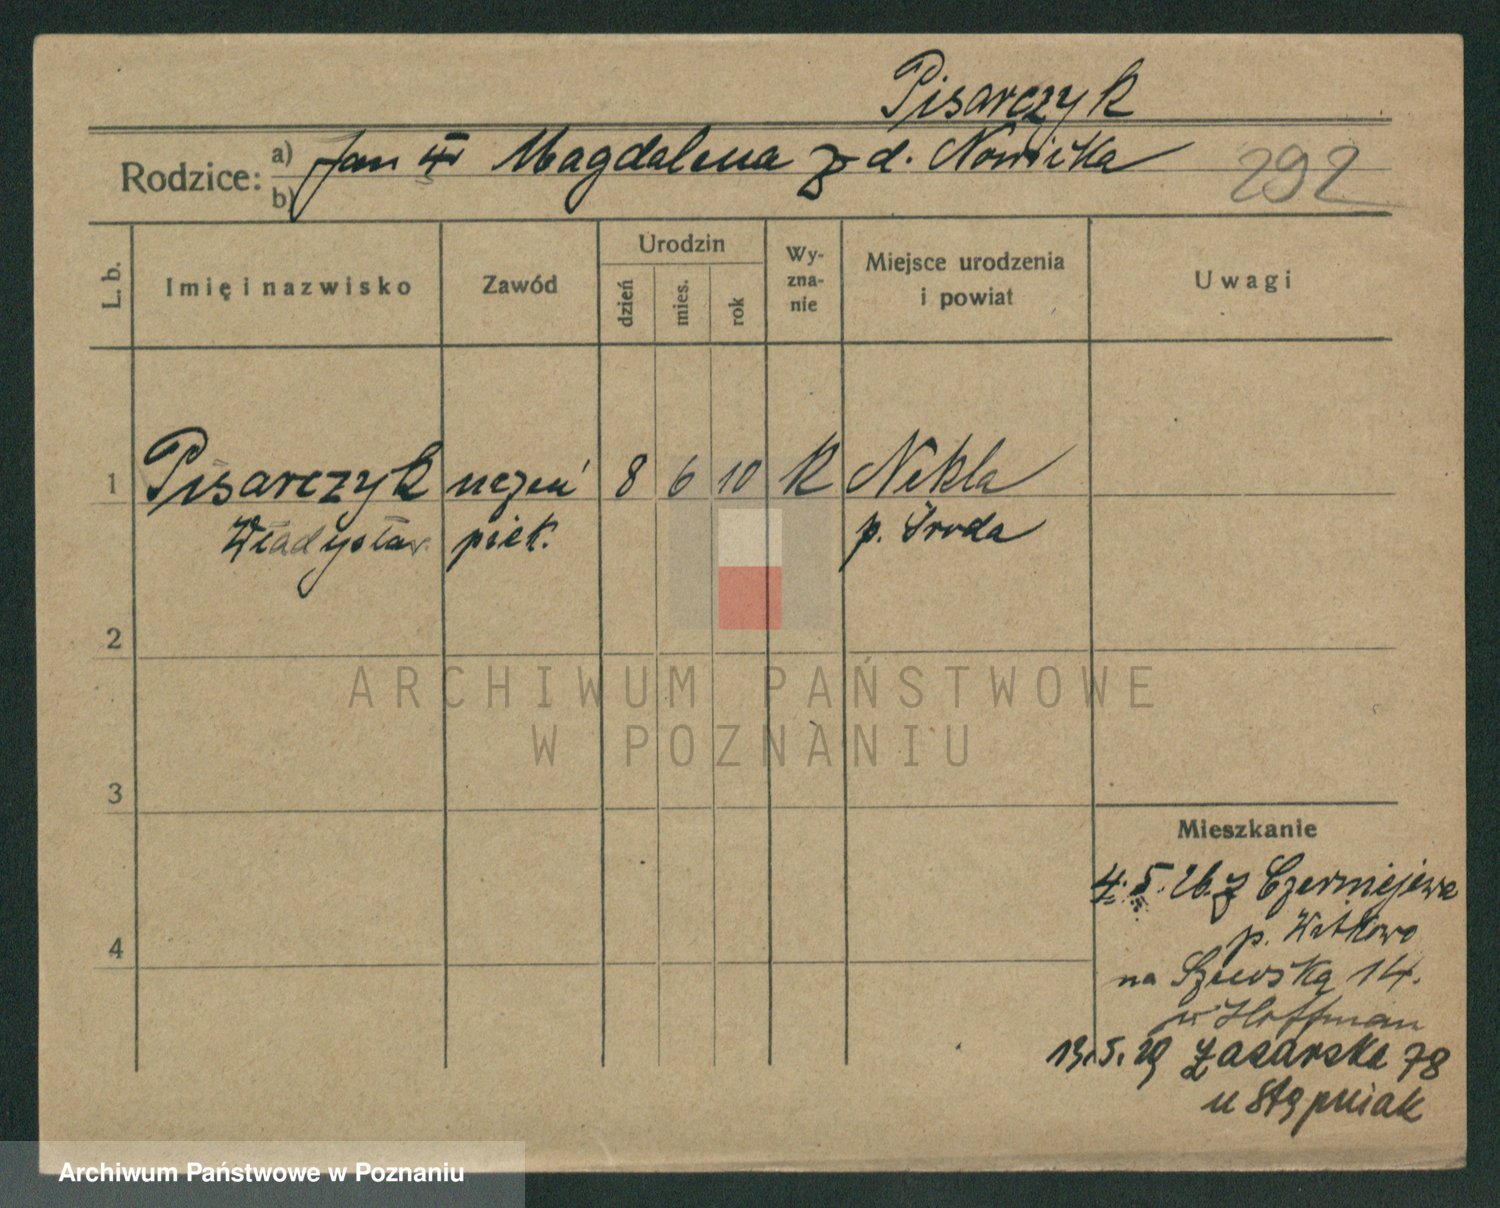 Pisarczyk
Rodzice: a) Jan Magdalena z d. Nowicka
b)
292
L. b.
Imię i nazwisko
Zawód
Urodzin
dzień
mies.
rok
Wy-
zna-
nie
Miejsce urodzenia
i powiat
Uwagi
1 Pisarczyk uczeń 8 6 10 k Nekla
Władysław piek. p. Środa
2
3
4
ARCHIWUM PAŃSTWOWE
W POZNANIU
Mieszkanie
4. 5. 26. z Czerniejewa
p. Witkowo
na Szewską 14.
Hoffman
13. 5. 29 78
u Stępniak
Archiwum Państwowe w Poznaniu